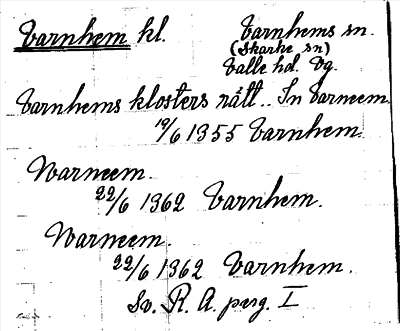 Varnhem kl. Varnhems sn.
(Skarke sn)
Valle hd. Vg.
Varnhems klosters rätt.. In Varneem
19/6 1355 Varnhem.
Warneem.
22/6 1362 Varnhem.
Warneem.
22/6 1362 Varnhem.
Sv. R. A. perg. I